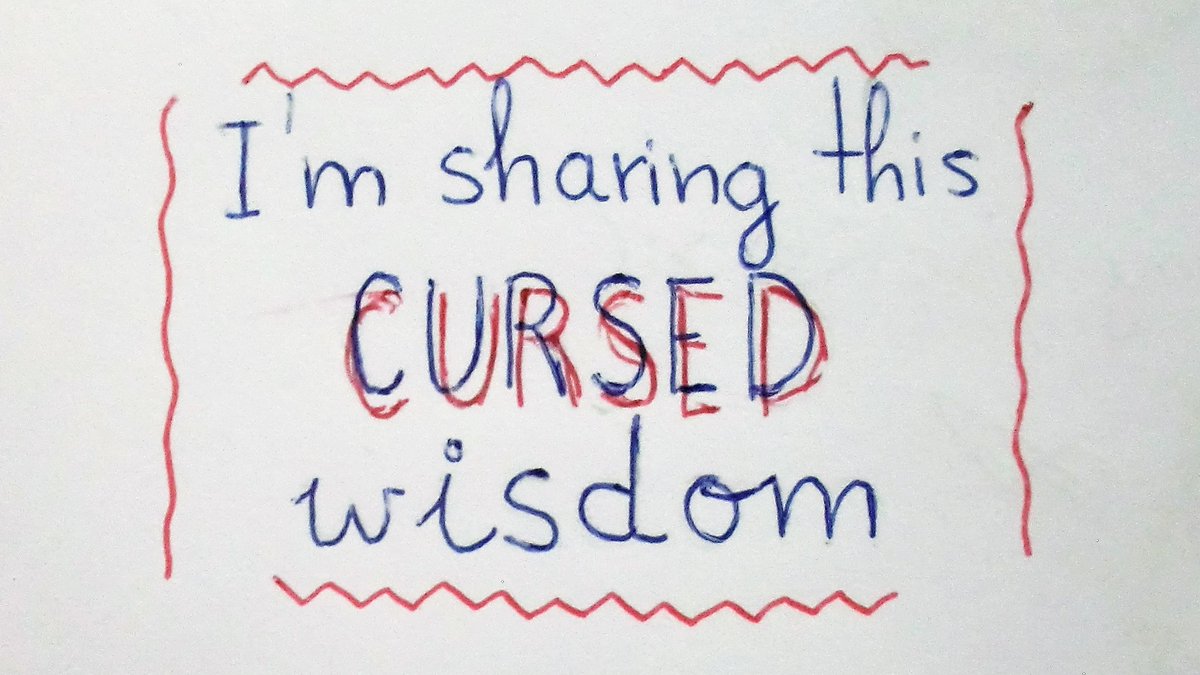 I'm sharing this
CURSED
wisdom